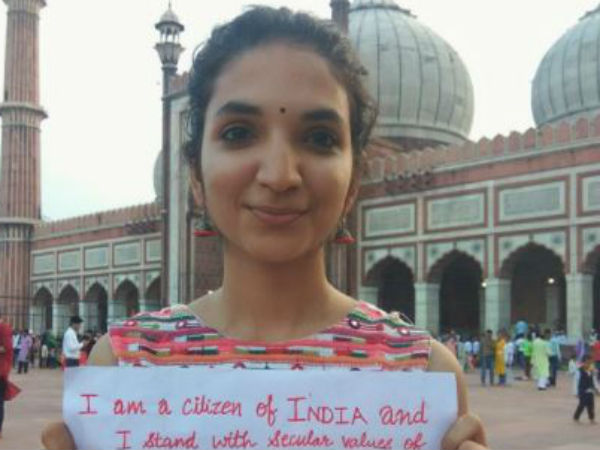 I am a citizen of INDIA and
I stand with secular values of